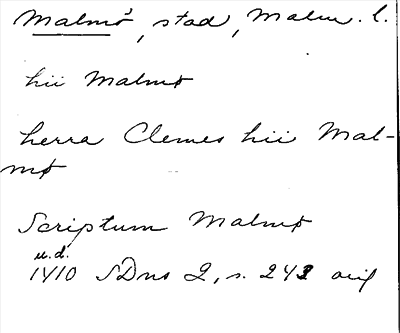 Malmö, stad, Malm. l.
hii Malmø
herra Clemes hii Mal-
mø
Scriptum Malmø
u.d.
1410 SDns 2, s. 243 orig